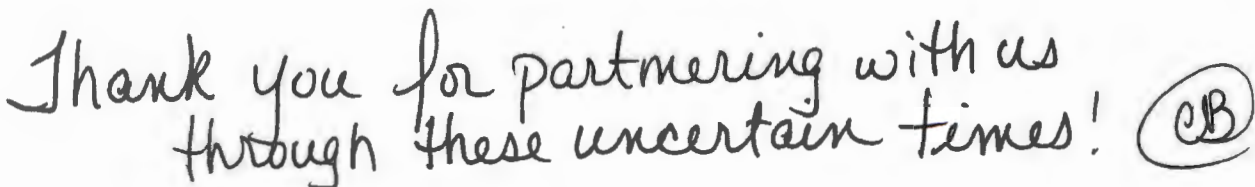 Thank you for partnering with us
through these uncertain times! CB